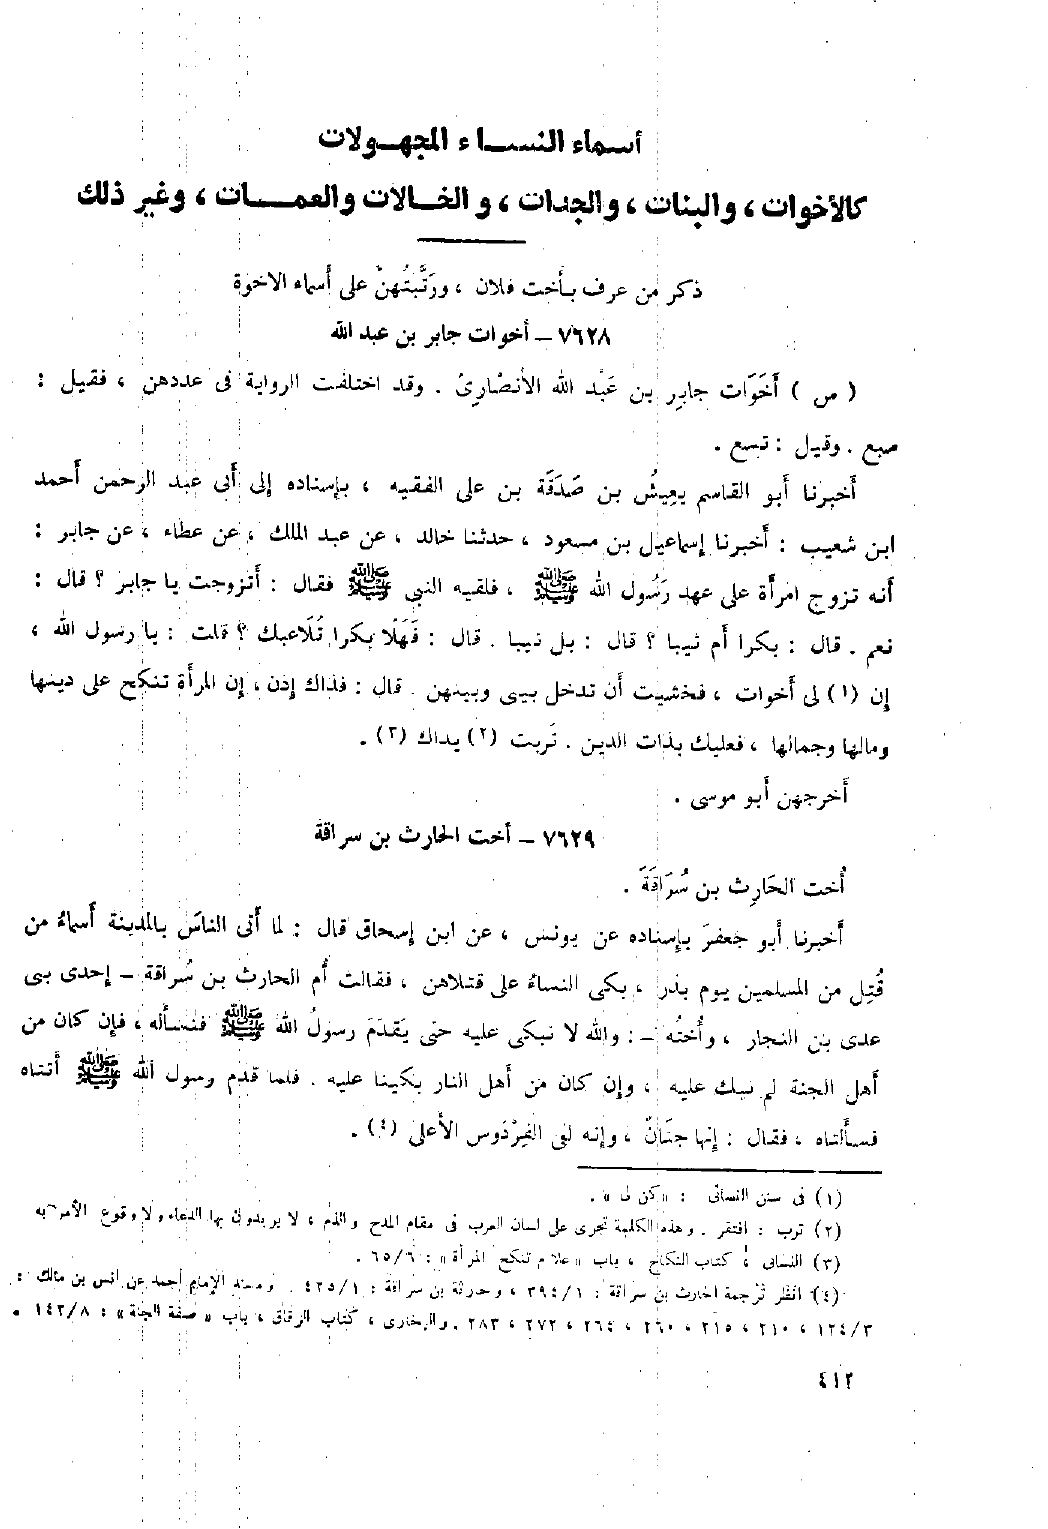 أسماء النساء المجهولات
كالأخوات ، والبنات ، والجدات ، والخالات والعمات ، وغير ذلك
ذكر من عرف بأخت فلان ، ورَتَّبتُهنّ على أسماء الاخوة
٧٦٢٨ – أخوات جابر بن عبد الله
( س ) أَخَوَات جابِر بن عَبْد الله الأَنْصَارِىّ . وقد اختلفت الرواية فى عددهن ، فقيل :
سبع . وقيل : تسع .
أخبرنا أبو القاسم يعِيشُ بن صَدَقَة بن على الفقيه ، بإسناده إلى أبى عبد الرحمن أحمد
ابن شعيب : أخبرنا إسماعيل بن مسعود ، حدثنا خالد ، عن عبد الملك ، عن عطاء ، عن جابر :
أنه تزوج امرأة على عهد رَسُول الله ﷺ ، فلقيه النبى ﷺ فقال : أتزوجت يا جابر ؟ قال :
نعم . قال : بكرا أم ثيبا ؟ قال : بل ثيبا . قال : فَهَلّا بكرا تُلَاعبك ؟ قلت : يا رسول الله ،
إن (١) لى أخوات ، فخشيت أن تدخل بينى وبينهن . قال : فذاك إذن ، إن المرأة تنكح على دينها
ومالها وجمالها ، فعليك بذات الدين . تَربت (٢) يداك (٣) .
أخرجهن أبو موسى .
٧٦٢٩ – أخت الحارث بن سراقة
أُخت الحَارِث بن سُرَاقَةَ .
أخبرنا أبو جعفرَ بإسناده عن يونس ، عن ابن إسحاق قال : لما أتى الناسَ بالمدينة أسماءُ من
قُتِل من المسلمين يوم بدر ، بكى النساءُ على قتلاهن ، فقالت أُم الحارث بن سُراقة – إحدى بنى
عدى بن النجار ، وأُختُه – : والله لا نبكى عليه حتى يَقدَمَ رسولُ الله ﷺ فنسأله ، فإن كان من
أهل الجنة لم نبك عليه ، وإن كان من أهل النار بكينا عليه . فلما قدم رسول الله ﷺ أتتاه
فسألتاه ، فقال : إنها جنَانٌ ، وإنه لفى الفِرْدَوس الأعلى (٤) .
(١) فى سنن النسائى : « كن لى » .
(٢) ترب : افتقر . وهذه الكلمة تجرى على لسان العرب فى مقام المدح والذم ، لا يريدون بها الدعاء ولا وقوع الأمر به
(٣) النسائى ، كتاب النكاح ، باب « علام تنكح المرأة » : ٦/٦٥ .
(٤) انظر ترجمة الحارث بن سراقة : ١/٣٩٤ ، وحارثة بن سراقة : ١/٤٢٥ . ومسند الإمام أحمد عن أنس بن مالك :
٣/١٢٤ ، ٢١٠ ، ٢١٥ ، ٢٦٠ ، ٢٦٤ ، ٢٧٢ ، ٢٨٣ . والبخارى ، كتاب الرقاق ، باب « صفة الجنة » : ٨/١٤٢ .
٤١٢